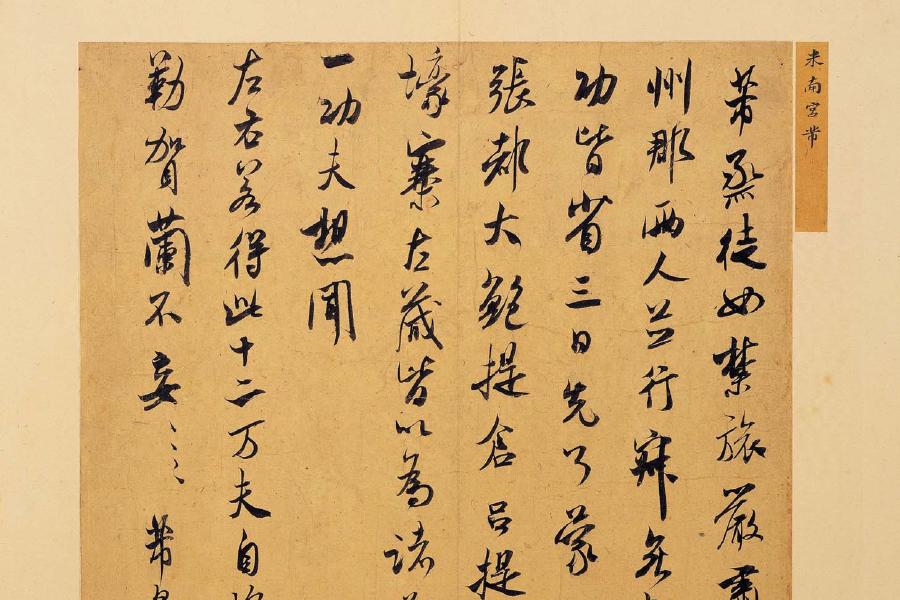 米南宮芾
芾烝徒如禁旅嚴肅
州那兩人并行寂無
功皆省三日先了蒙
張都大鮑提倉呂提
壕寨左藏皆以為諸
一功夫想聞
左右若得此十二万夫自將
勒賀蘭不妄〻〻芾皇